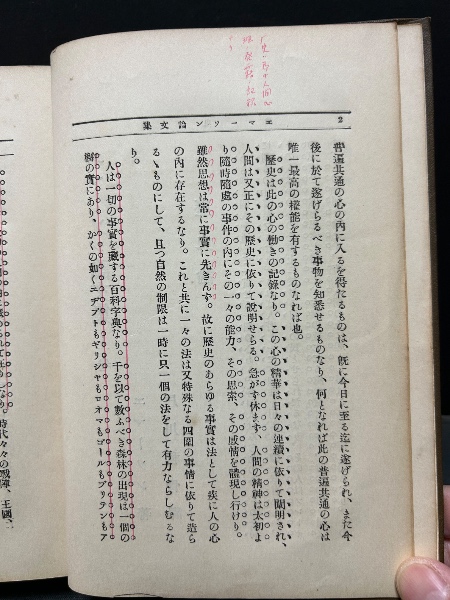 エマーソン論文集
2
普遍共通の心の內に入るを得たるものは、既に今日に至る迄に遂げられ、また今
後に於て遂げらるべき事物を知悉せるものなり、何となれば此の普遍共通の心は
唯一最高の權能を有するものなれば也。
歷史は此の心の働きの記錄なり。この心の精華は日々の連續に依りて闡明され、
人間は又正にその歷史に依りて說明せらる。急がず休まず、人間の精神は太初よ
り隨時隨處の事件の內にその一々の能力、その思索、その感情を體現し行けり。
雖然思想は常に事實に先きんす。故に歷史のあらゆる事實は法として疾に人の心
の內に存在するなり。これと共に一々の法は又特殊なる四圍の事情に依りて造ら
るゝものにして、且つ自然の制限は一時に只一個の法をして有力ならしむるな
り。
人は一切の事實を藏する百科字典なり。千を以て數ふべき森林の出現は一個の
檞の實にあり、かくの如くエヂプトもギリシヤもロオマもゴールもブリテンもア
時代々々の戰陣、王國、